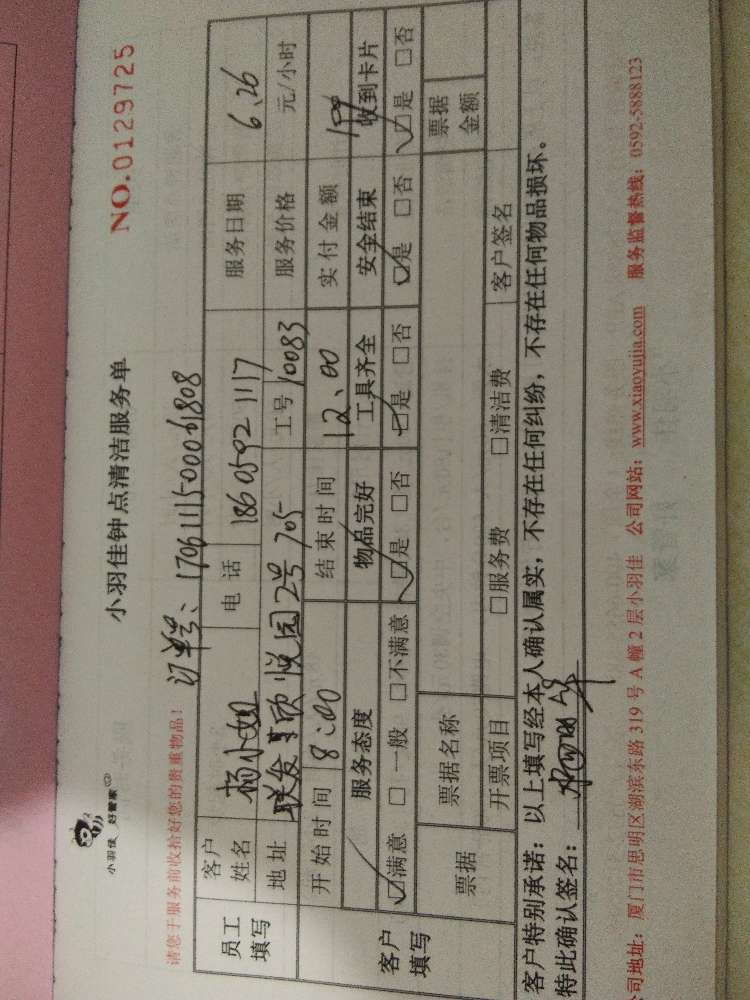 小羽佳 好管家
小羽佳钟点清洁服务单
NO.0129725
请您于服务前收拾好您的贵重物品!
订单号、17061115000061808
员工填写
客户姓名 杨小姐 电话 18605921117 服务日期 6.26
地址 联发欣悦园2号705 工号 10083 服务价格 元/小时
开始时间 8:00 结束时间 12.00 实付金额
客户填写
服务态度 物品完好 工具齐全 安全结束 收到卡片
☑满意 □一般 □不满意 ☑是 □否 ☑是 □否 ☑是 □否 ☑是 □否
票据 票据名称 票据金额
开票项目 □服务费 □清洁费 客户签名
客户特别承诺:以上填写经本人确认属实,不存在任何纠纷,不存在任何物品损坏。
特此确认签名:
公司地址:厦门市思明区湖滨东路319号A幢2层小羽佳 公司网站:www.xiaoyujia.com 服务监督热线:0592-5888123